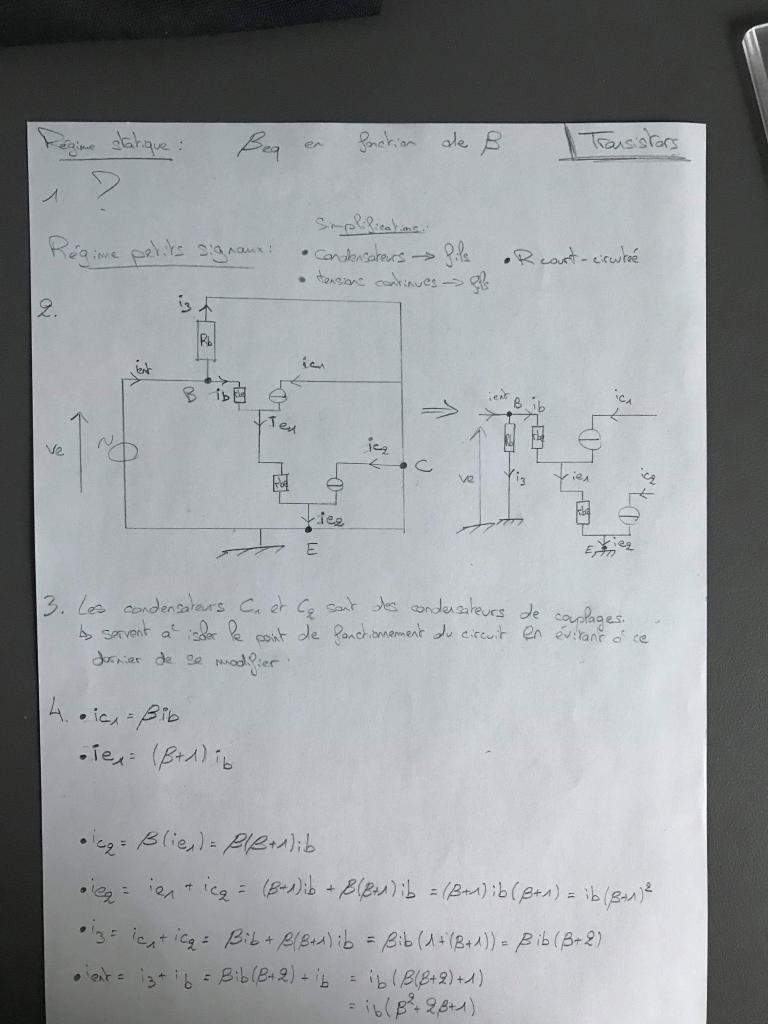 Régime statique : βeq en fonction de β Transistors
1 ?
Simplifications:
Régime petits signaux: • condensateurs → fils • R court-circuitée
• tensions continues → fils
2.
i3
Rb
ient
B
ib
ic1
Ie1
ve
~
ic2
C
ie2
E
⇒
ient
B
ib
ic1
Rb
ve
i3
ie1
ic2
E
ie2
3. Les condensateurs C1 et C2 sont des condensateurs de couplages.
↳ servent à isoler le point de fonctionnement du circuit en évitant à ce
dernier de se modifier.
4. • ic1 = βib
• Ie1 = (β+1) ib
• ic2 = β(ie1) = β(β+1)ib
• ie2 = ie1 + ic2 = (β+1)ib + β(β+1)ib = (β+1)ib(β+1) = ib(β+1)²
• i3 = ic1 + ic2 = βib + β(β+1)ib = βib(1+(β+1)) = βib(β+2)
• ient = i3 + ib = βib(β+2) + ib = ib(β(β+2)+1)
= ib(β²+2β+1)